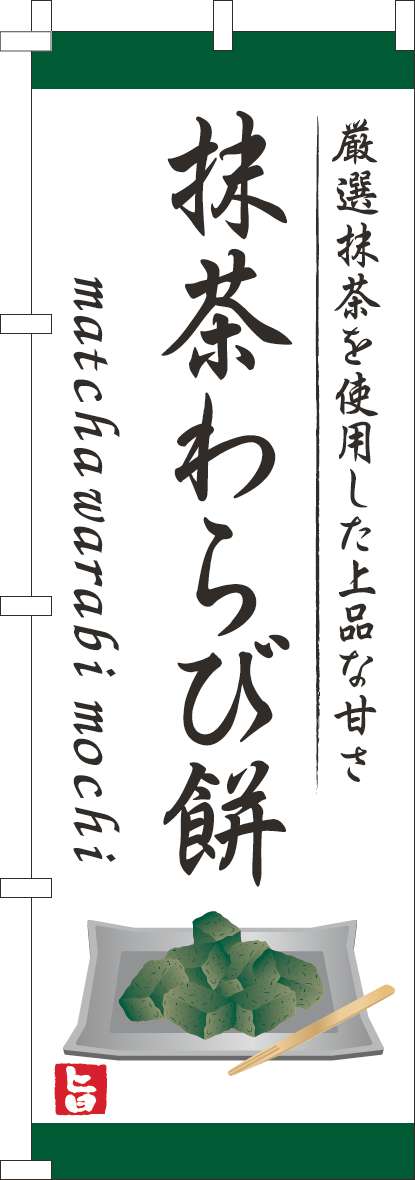 厳選抹茶を使用した上品な甘さ
抹茶わらび餅
matcha warabi mochi
旨